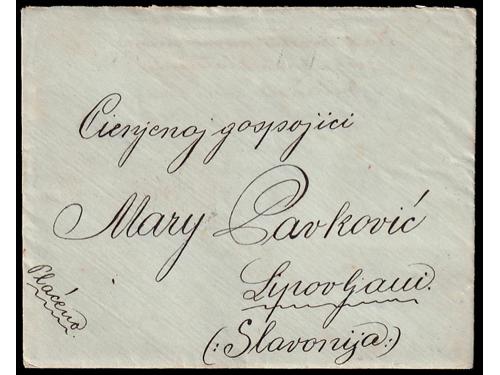 Cienjenoj gospojici
Mary Pavković
Lipovljani.
(: Slavonija :)
Plaćeno.